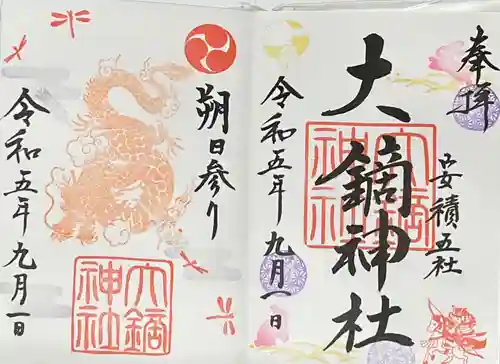 奉拝
安積五社
大鏑神社
大鏑神社
令和五年九月一日
朔日参り
大鏑神社
令和五年九月一日